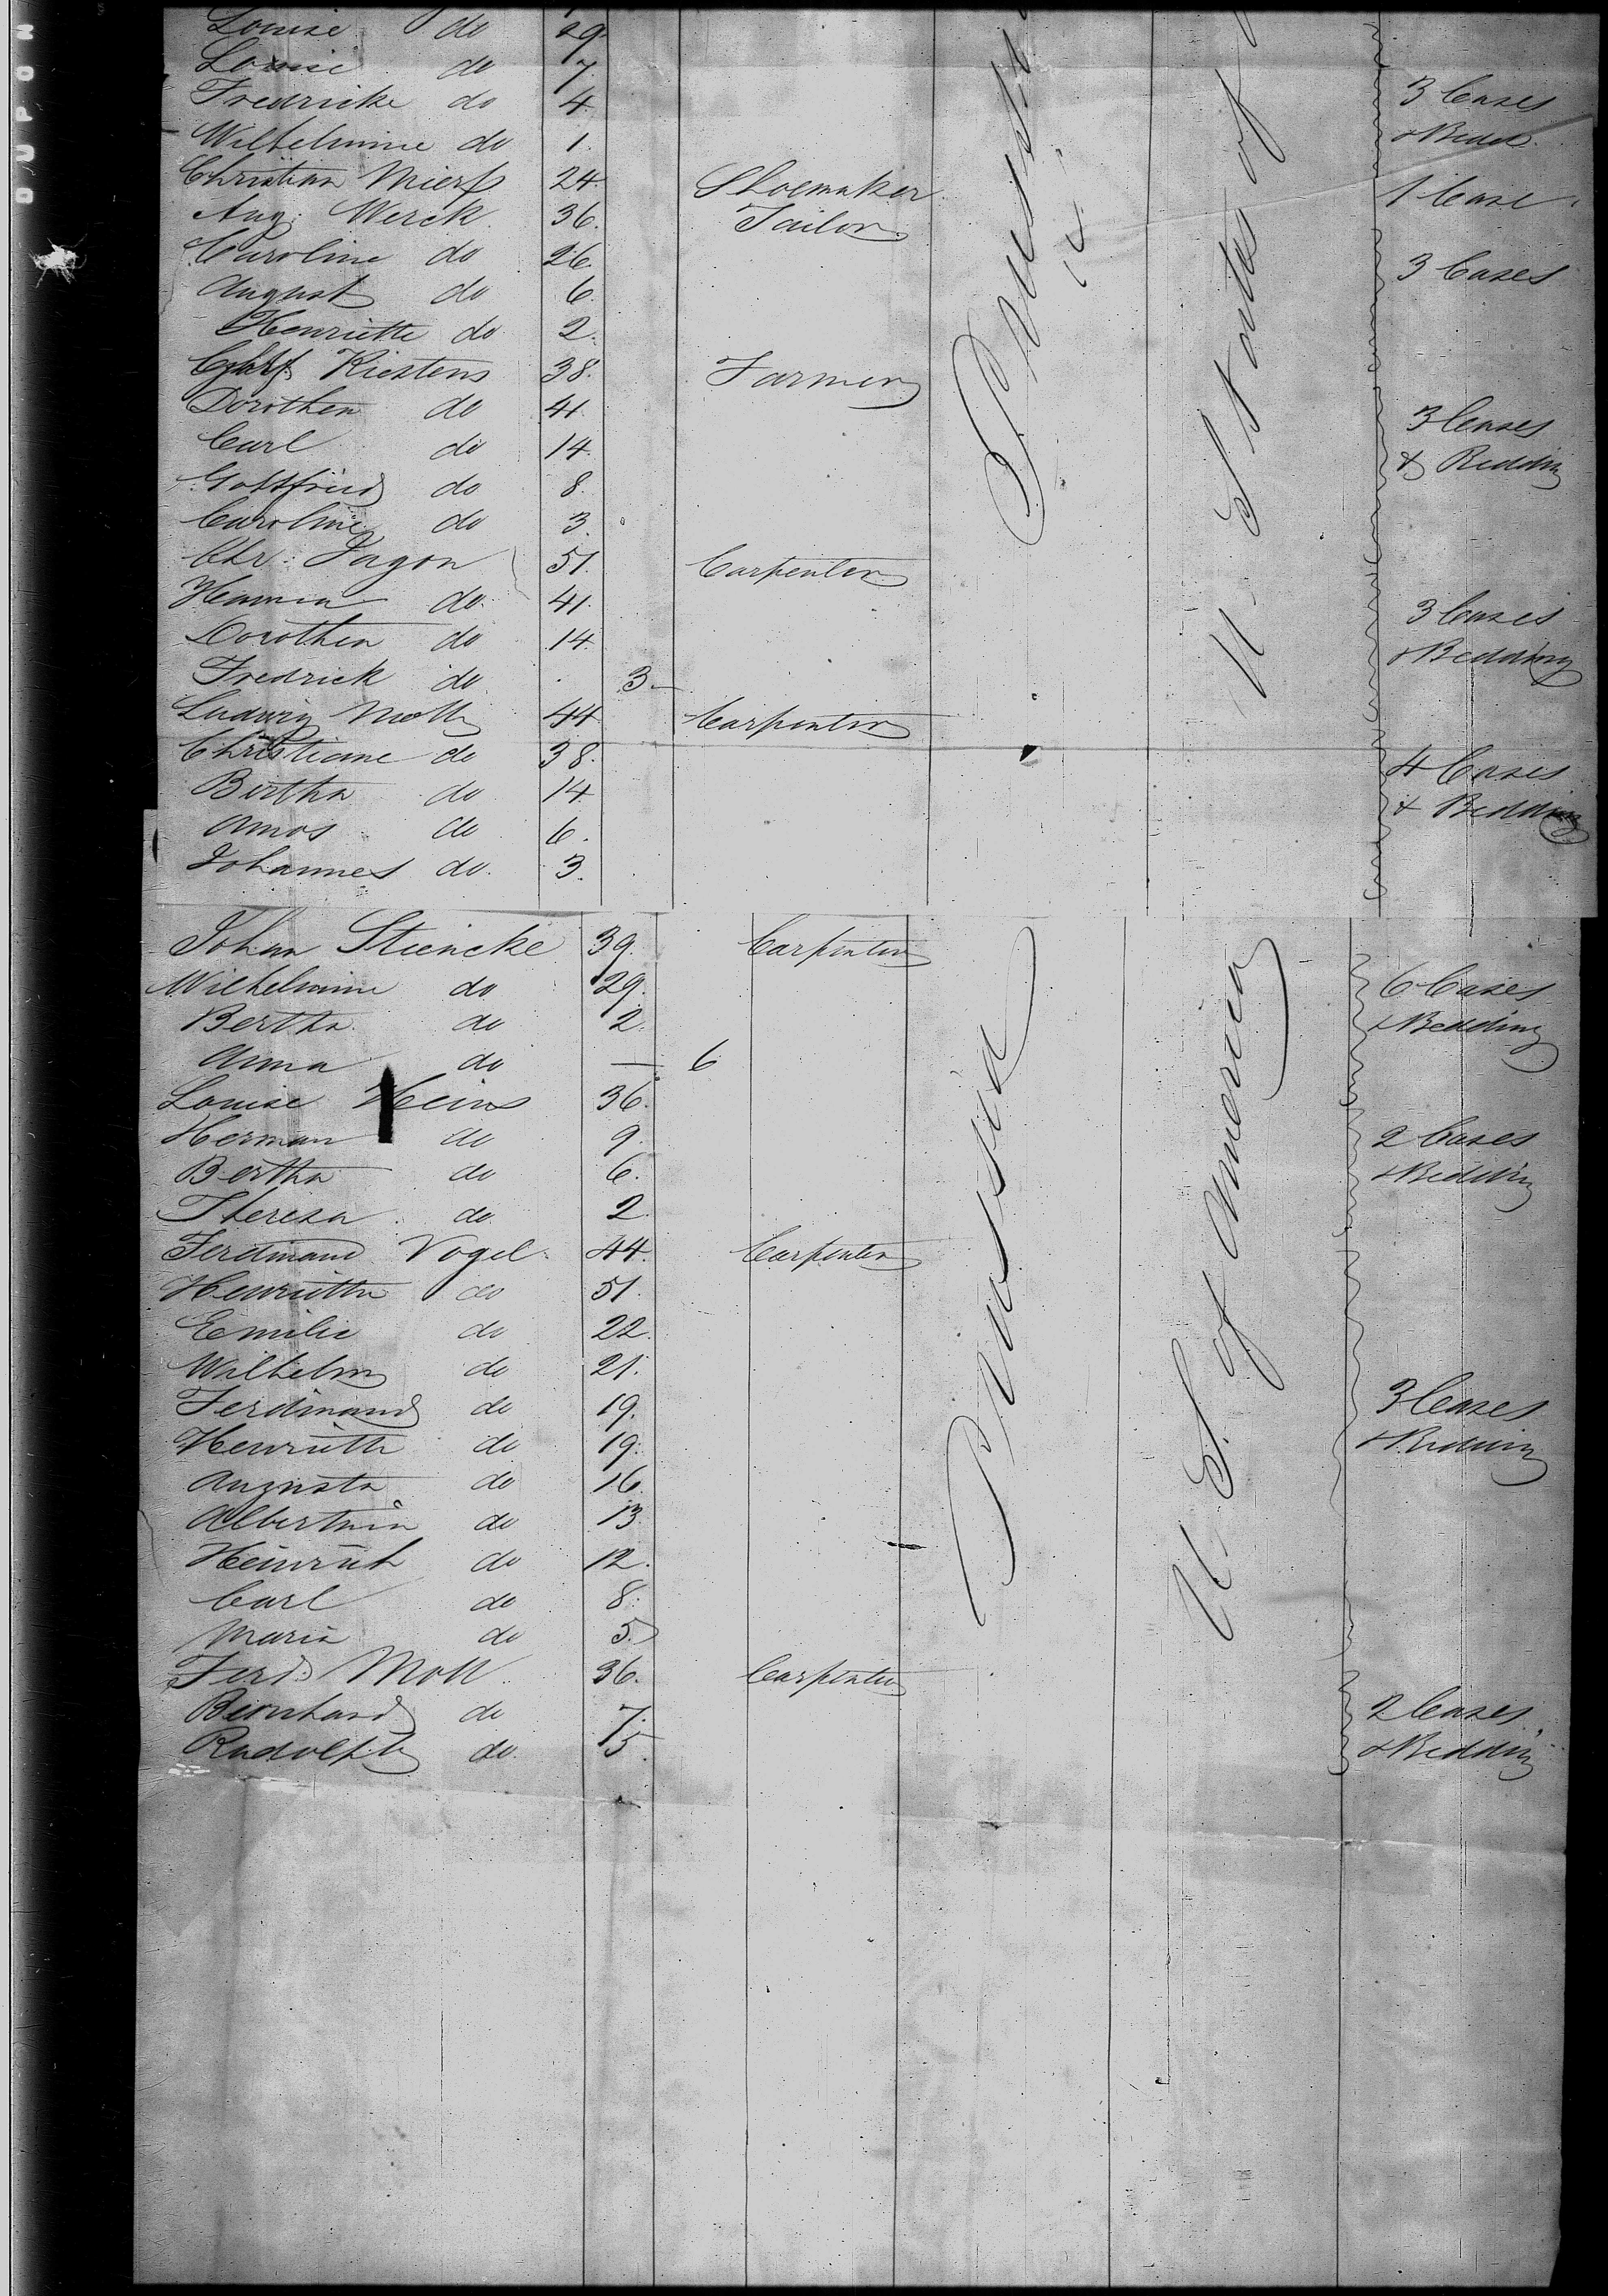 Louise do 29
Louise do 7
Fredricke do 4 3 Cases
Wilhelmine do 1. & Beds.
Christian Mierß 24. Shoemaker 1 Case.
Aug: Werck. 36. Tailor
Caroline do 26. 3 Cases
August do 6.
Henriette do 2.
Kiestens 38. Farmer
Dorothea do 41. 3 Cases
Carl do 14. & Bedding
Gottfried do 8.
Caroline do 3.
Chr: Jagon 51. Carpenter
Hanna do 41. 3 Cases
Dorothea do 14. & Bedding
Fredrick do. 3
Ludwig Moll 44 Carpenter
Christiane do 38. 4 Cases
Bertha do 14. & Bedding
Amos do 6.
Johannes do. 3.
U. States of
Johan Steincke 39. Carpenter
Wilhelmine do 29. 6 Cases
Bertha do 2. & Bedding
Anna do — 6
Louise Heins 36.
Herman do 9. 2 Cases
Bertha do 6. & Bedding
Theresa do 2.
Ferdinand Vogel 44. Carpenter
Henriette do 51.
Emilie do 22.
Wilhelm do 21.
Ferdinand do 19. 3 Cases
Henriette do 19. & Bedding
Augusta do 16.
Albertine do 13
Heinrich do 12.
Carl do 8.
Maria do 5.
Ferd. Moll 36. Carpenter
Bernhard do 7. 2 Cases
Rudolph do. 5. & Bedding
Prussia
U. S. of America
DUPON